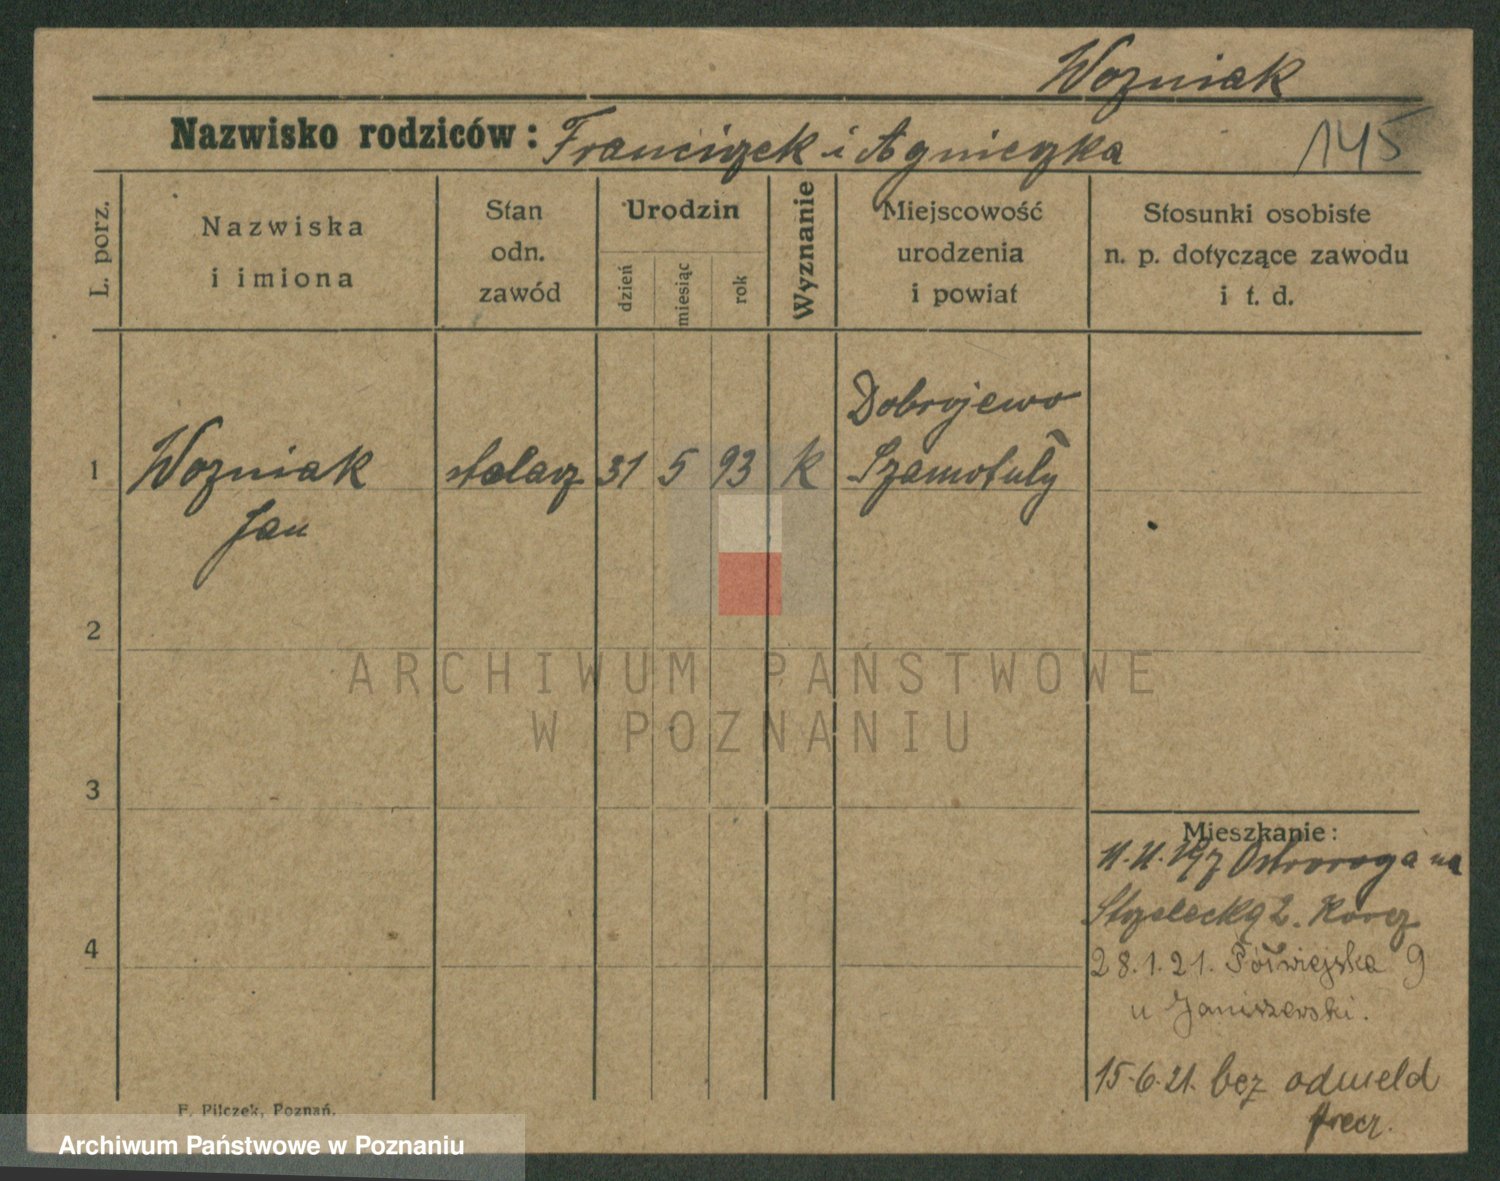 Wozniak
Nazwisko rodziców: Franciszek i Agnieszka
145
L. porz.
Nazwiska
i imiona
Stan
odn.
zawód
Urodzin
dzień
miesiąc
rok
Wyznanie
Miejscowość
urodzenia
i powiat
Stosunki osobiste
n. p. dotyczące zawodu
i t. d.
Dobrojewo
1 Wozniak stolarz 31 5 93 k Szamotuły
Jan
2
ARCHIWUM PAŃSTWOWE
W POZNANIU
3
Mieszkanie:
Ostroroga na
Strzelecką 2.
4
28.1.21. Półwiejska 9
u Janiszewski.
15.6.21. bez odmeld
F. Pilczek, Poznań.
Archiwum Państwowe w Poznaniu